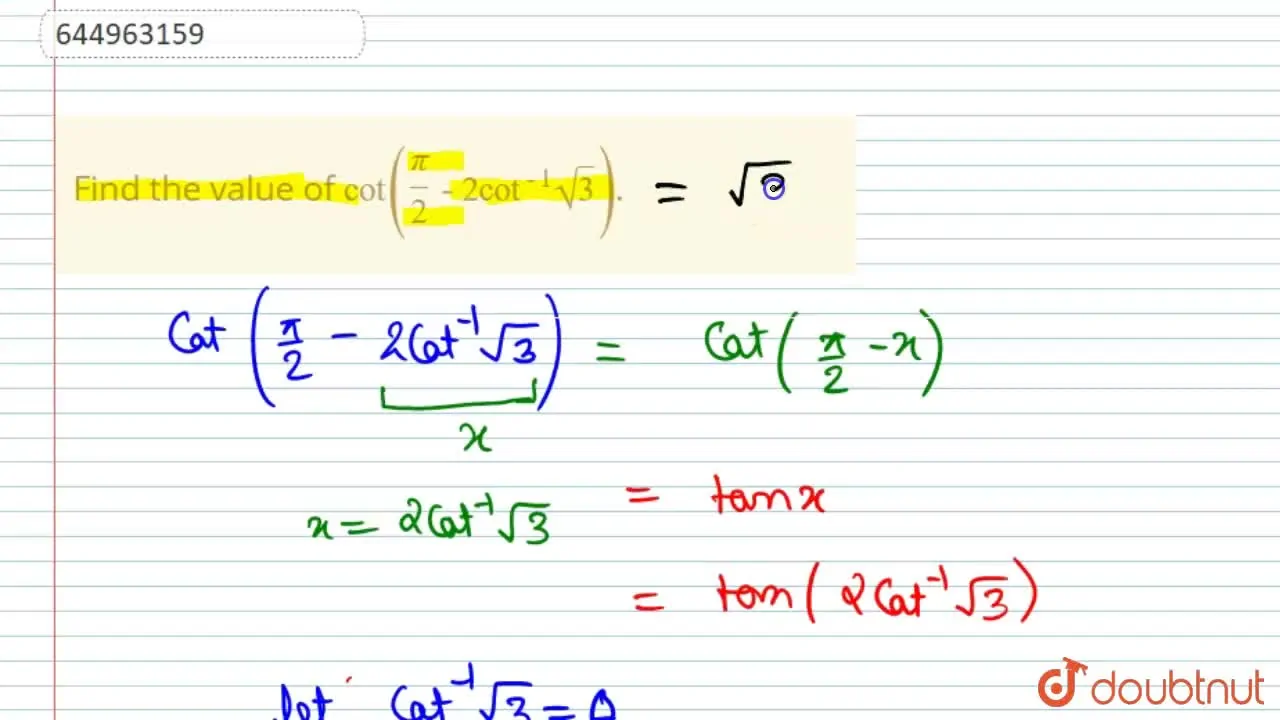 644963159
Find the value of cot(π/2 - 2cot⁻¹√3). = √
Cot (π/2 - 2Cot⁻¹√3) = Cot (π/2 - x)
x
= tan x
x = 2Cot⁻¹√3
= tan (2Cot⁻¹√3)
let Cot⁻¹√3 = θ
doubtnut